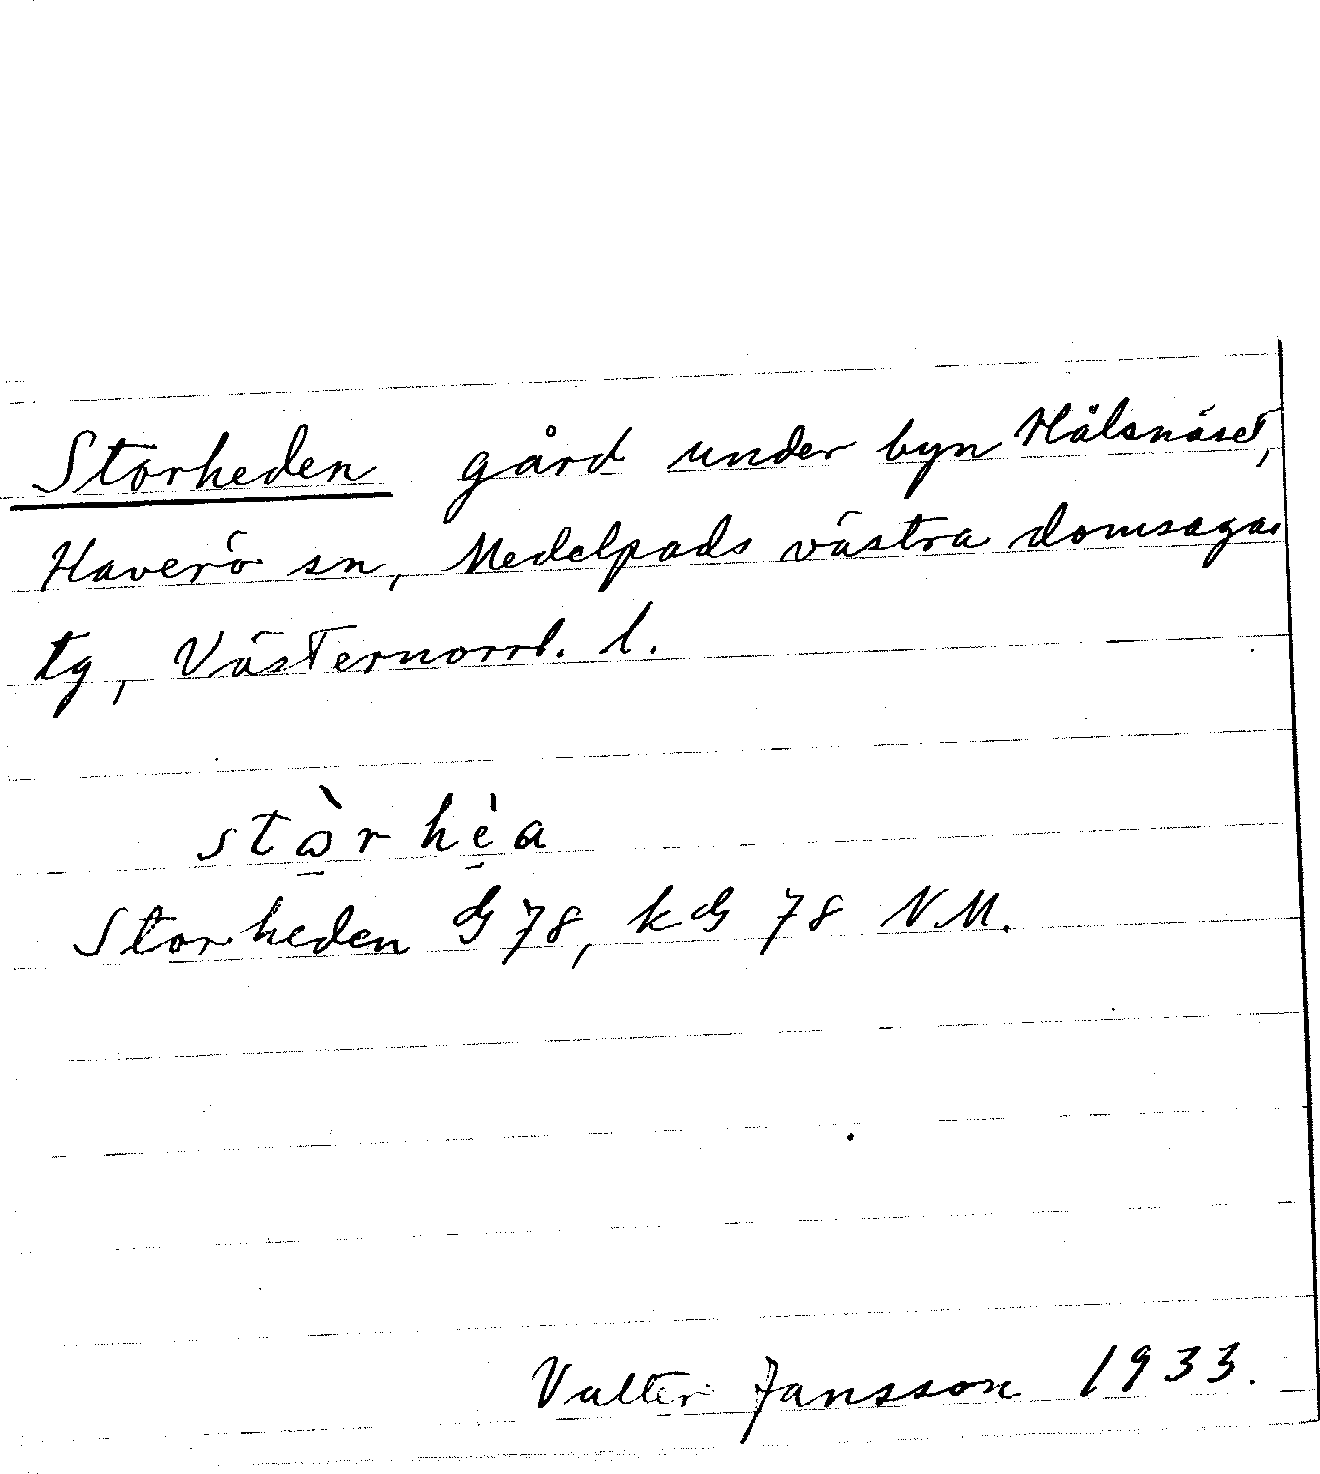 Storheden gård under byn Hälsnäset,
Haverö sn, Medelpads västra domsagas
tg, Västernorrl. l.
stὼ̠r hè̠a
Storheden G 78, kG 78 NM.
Valter Jansson 1933.